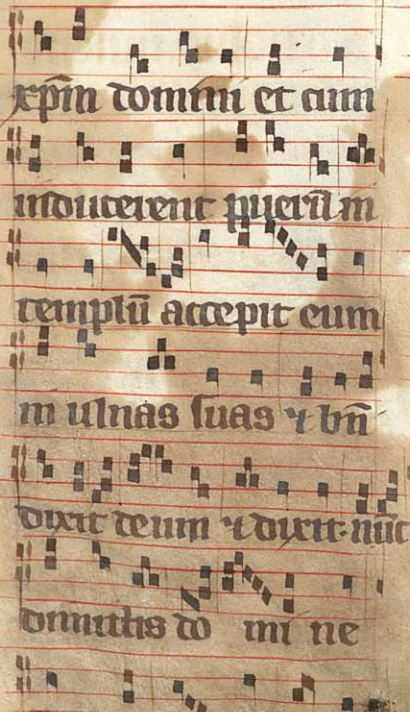 xp̄m domini et cum
inducerent puerū in
templū accepit eum
in ulnas suas ⁊ bn̄
dixit deum ⁊ dixit· nūc
dimittis do mi ne